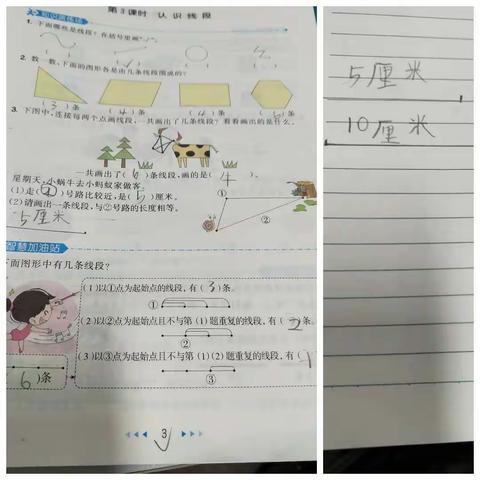 知识训练场
第3课时 认识线段
1. 下面哪些是线段？在括号里画“√”。
2. 数一数，下面的图形各是由几条线段围成的？
( 3 )条 ( 4 )条 ( 4 )条 ( 6 )条
3. 下图中，连接每两个点画线段，一共画出了几条线段？看看画出的是什么。
一共画出了( 6 )条线段，画的是( 牛 )。
星期天，小蜗牛去小蚂蚁家做客。
(1)走( )号路比较近，是( 5 )厘米。
(2)请画出一条线段，与②号路的长度相等。
5厘米
①
②
智慧加油站
下面图形中有几条线段？
(1)以①点为起始点的线段，有( 3 )条。
①
(2)以②点为起始点且不与第(1)题重复的线段，有( 2 )条。
②
(3)以③点为起始点且不与第(1)(2)题重复的线段，有( 1
③
( 6 )条
3
5厘米
10厘米